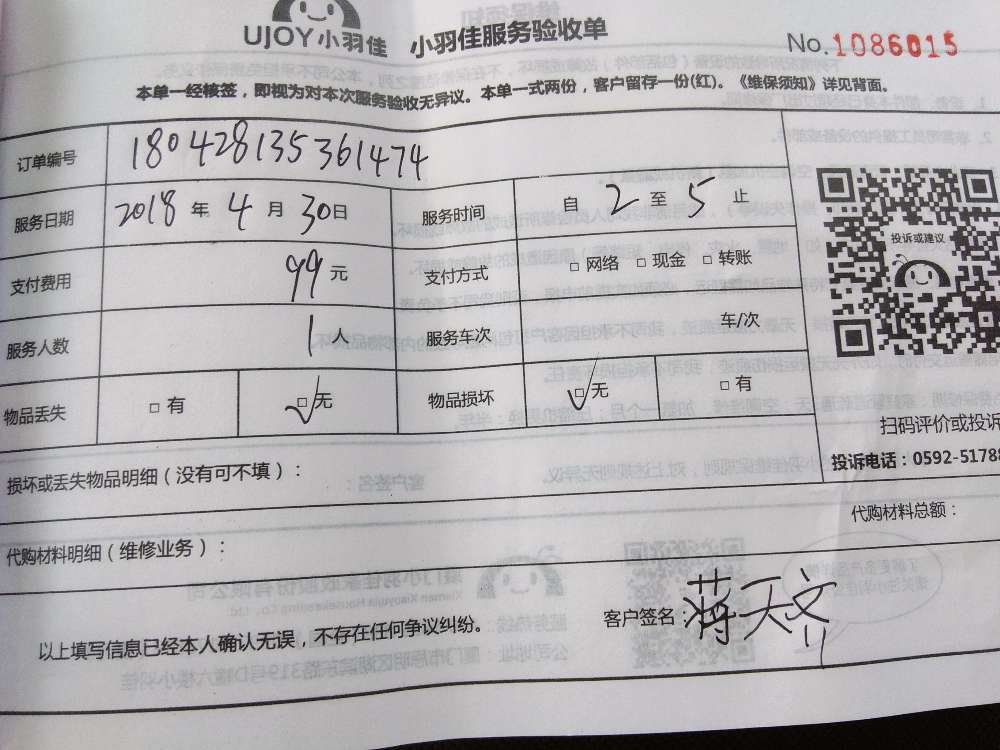 UJOY小羽佳 小羽佳服务验收单
No.1086015
本单一经核签，即视为对本次服务验收无异议。本单一式两份，客户留存一份(红)。《维保须知》详见背面。
订单编号 180428135361474
服务日期 2018 年 4 月 30日 服务时间 自 2 至 5 止
投诉或建议
支付费用 99 元 支付方式 □ 网络 □ 现金 □ 转账
服务人数 1 人 服务车次 车/次
物品丢失 □ 有 ☑ 无 物品损坏 ☑ 无 □ 有
扫码评价或投诉
投诉电话：0592-5178
损坏或丢失物品明细（没有可不填）：
代购材料总额：
代购材料明细（维修业务）：
以上填写信息已经本人确认无误，不存在任何争议纠纷。
客户签名：蒋天